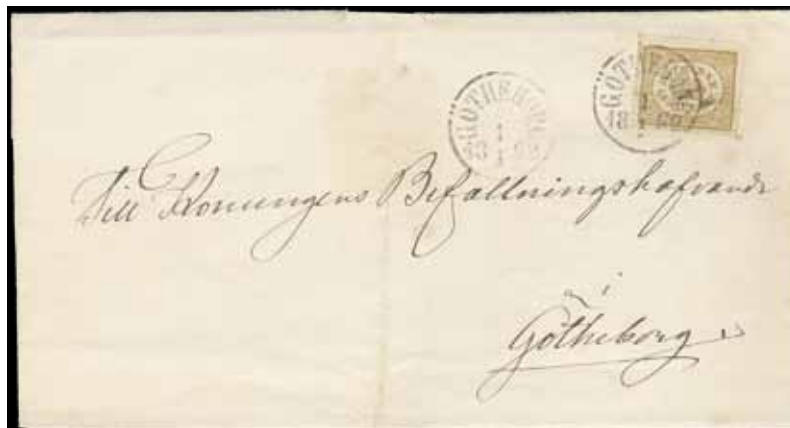 GÖTHEBORG
GÖTHEBORG
Till Konungens Befallningshafvande
i
Götheborg